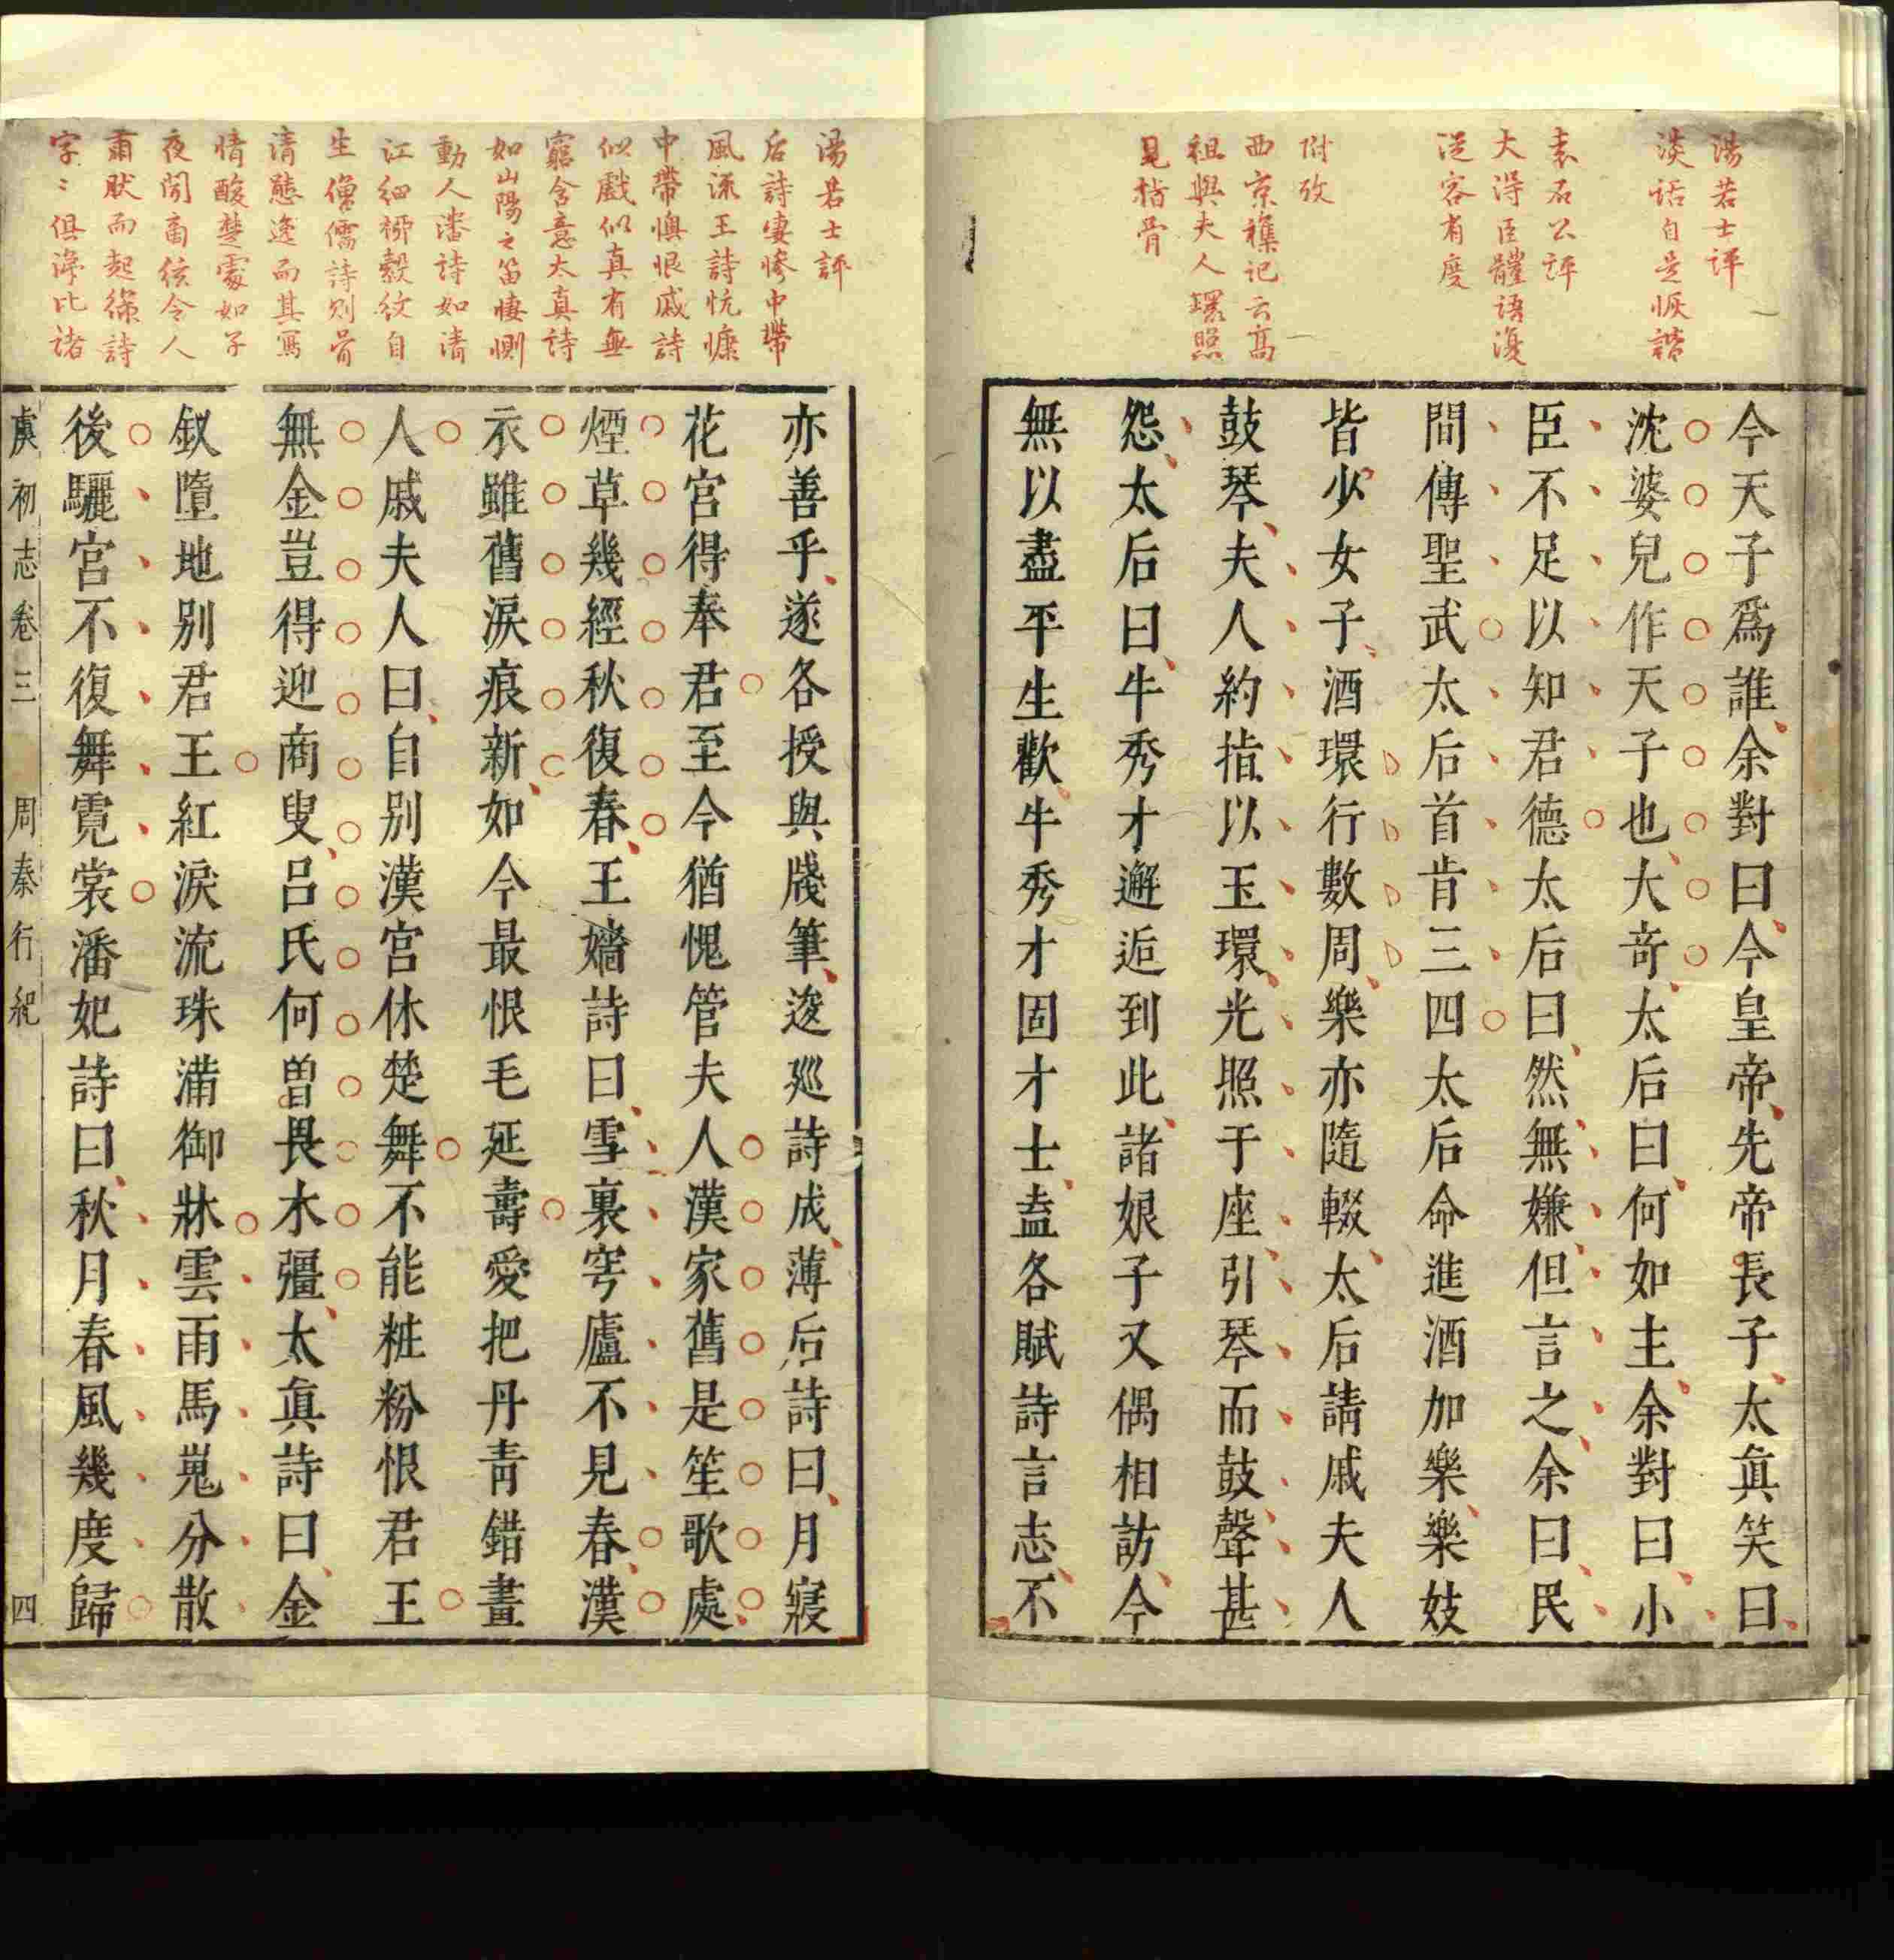 湯若士評
淡話自是恢諧
袁石公評
大得臣體語復
從容有度
附攷
西京雜記云高
祖與夫人環照
見指骨
今天子爲誰余對曰今皇帝先帝長子太眞笑曰
沈婆兒作天子也大奇太后曰何如主余對曰小
臣不足以知君德太后曰然無嫌但言之余曰民
間傳聖武太后首肯三四太后命進酒加樂樂妓
皆少女子酒環行數周樂亦隨輟太后請戚夫人
鼓琴夫人約指以玉環光照于座引琴而鼓聲甚
怨太后曰牛秀才邂逅到此諸娘子又偶相訪今
無以盡平生歡牛秀才固才士盍各賦詩言志不
湯若士評
后詩悽慘中帶
風流王詩忼慷
中帶懊恨戚詩
似戲似真有無
窮含意太真詩
如山陽之笛悽惻
動人潘詩如清
江細柳縠紋自
生僧儒詩則骨
清態逸而其寫
情酸楚處如子
夜聞商絃令人
肅然而起綠詩
字〻俱淨比諸
亦善乎遂各授與牋筆逡廵詩成薄后詩曰月寢
花宮得奉君至今猶愧管夫人漢家舊是笙歌處
煙草幾經秋復春王嬙詩曰雪裏穹廬不見春漢
衣雖舊淚痕新如今最恨毛延壽愛把丹靑錯畫
人戚夫人曰自別漢宮休楚舞不能粧粉恨君王
無金豈得迎商叟呂氏何曽畏木彊太眞詩曰金
釵墮地別君王紅淚流珠滿御牀雲雨馬嵬分散
後驪宮不復舞霓裳潘妃詩曰秋月春風幾度歸
虞初志卷三 周秦行紀 四